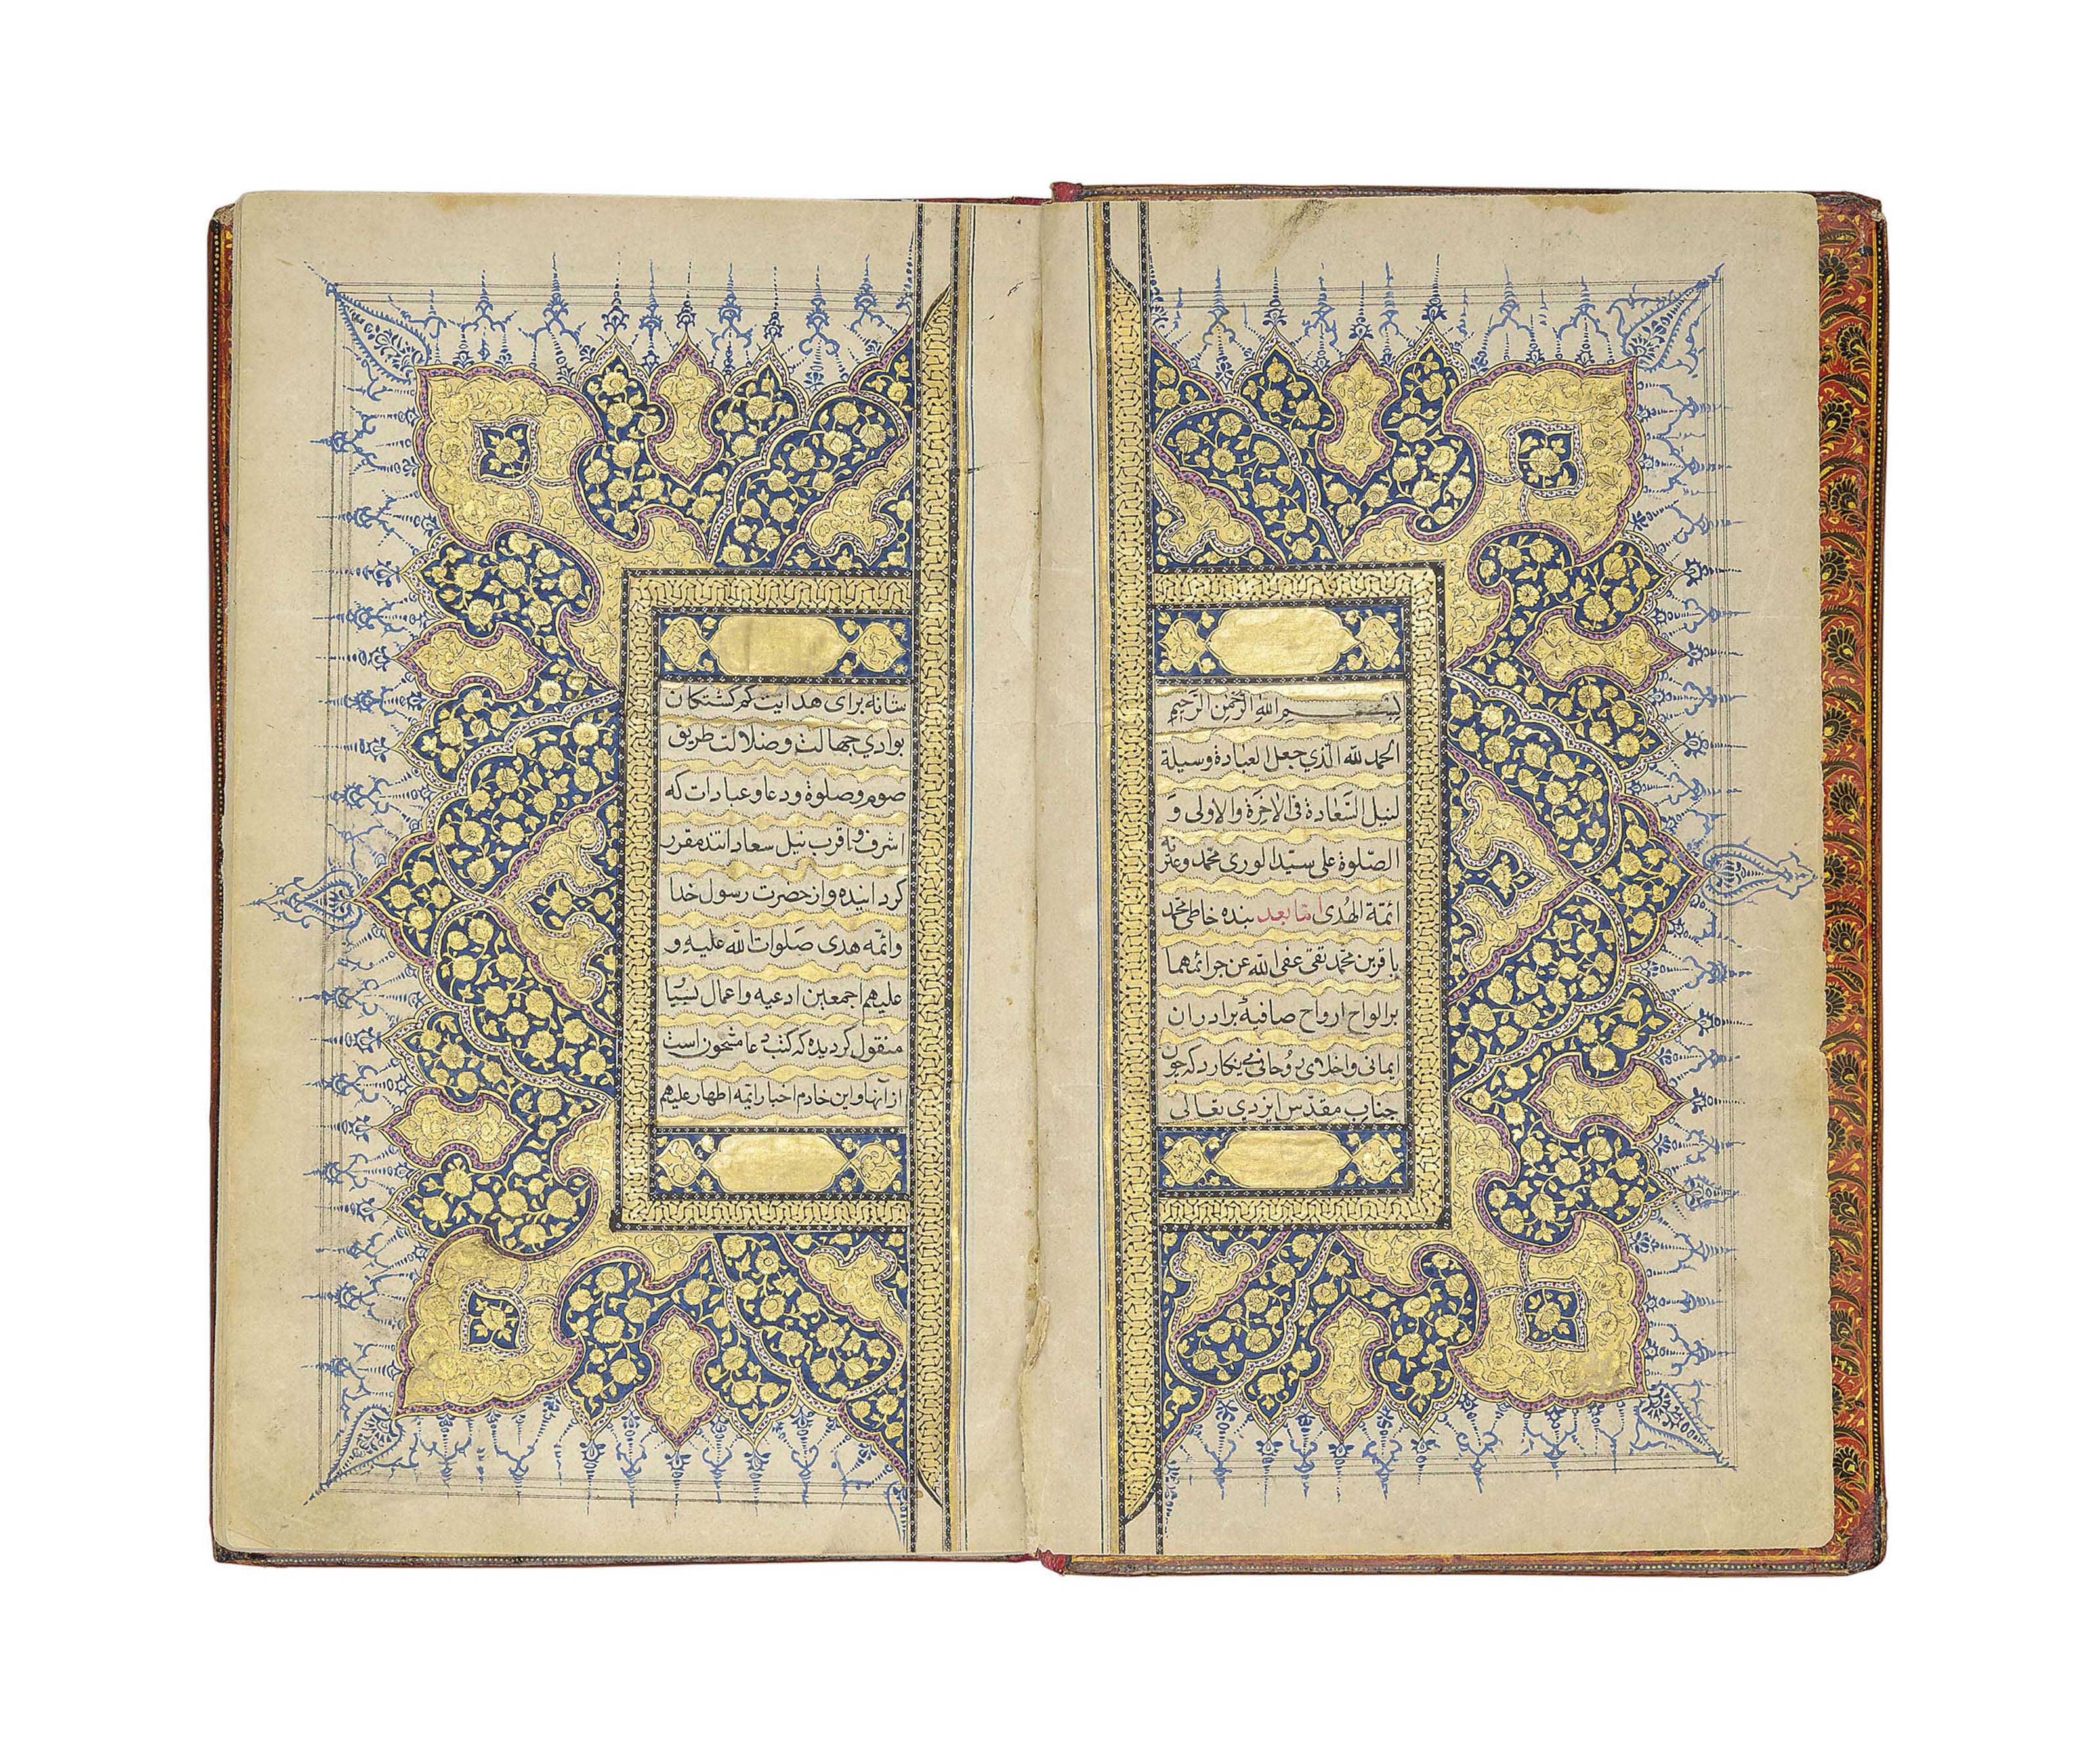 بِسْمِ اللهِ الرَّحْمٰنِ الرَّحِيمِ
الحمد لله الّذي جعل العبادة وسيلة
لنيل السَّعادة في الاخِرَة والاولى و
الصّلوة على سيّد الورى محمّد وعترته
ائمّة الهُدى امّا بعد بنده خاطى محمد
باقر بن محمّد تقى عفى الله عن جرائمهما
بر الواح ارواح صافيهٔ برادران
ايمانى و اخلاى روُحانى مى‌نكارد كه چون
جناب مقدّس ايزدى تعالى
شانه براى هدايت كم كشتكان
بوادي جهالت و ضلالت طريق
صوم و صلوة و دعا و عبادات كه
اشرف و اقرب نيل سعاداتند مقرر
كردانيده و از حضرت رسول خدا
و ائمّه هدى صَلوات الله عليه و
عليهم اجمعين ادعيه و اعمال بسيار
منقول كرديده كه كتب دعا مشحون است
از آنها و اين خادم اخبار ائمه اطهار عليهم